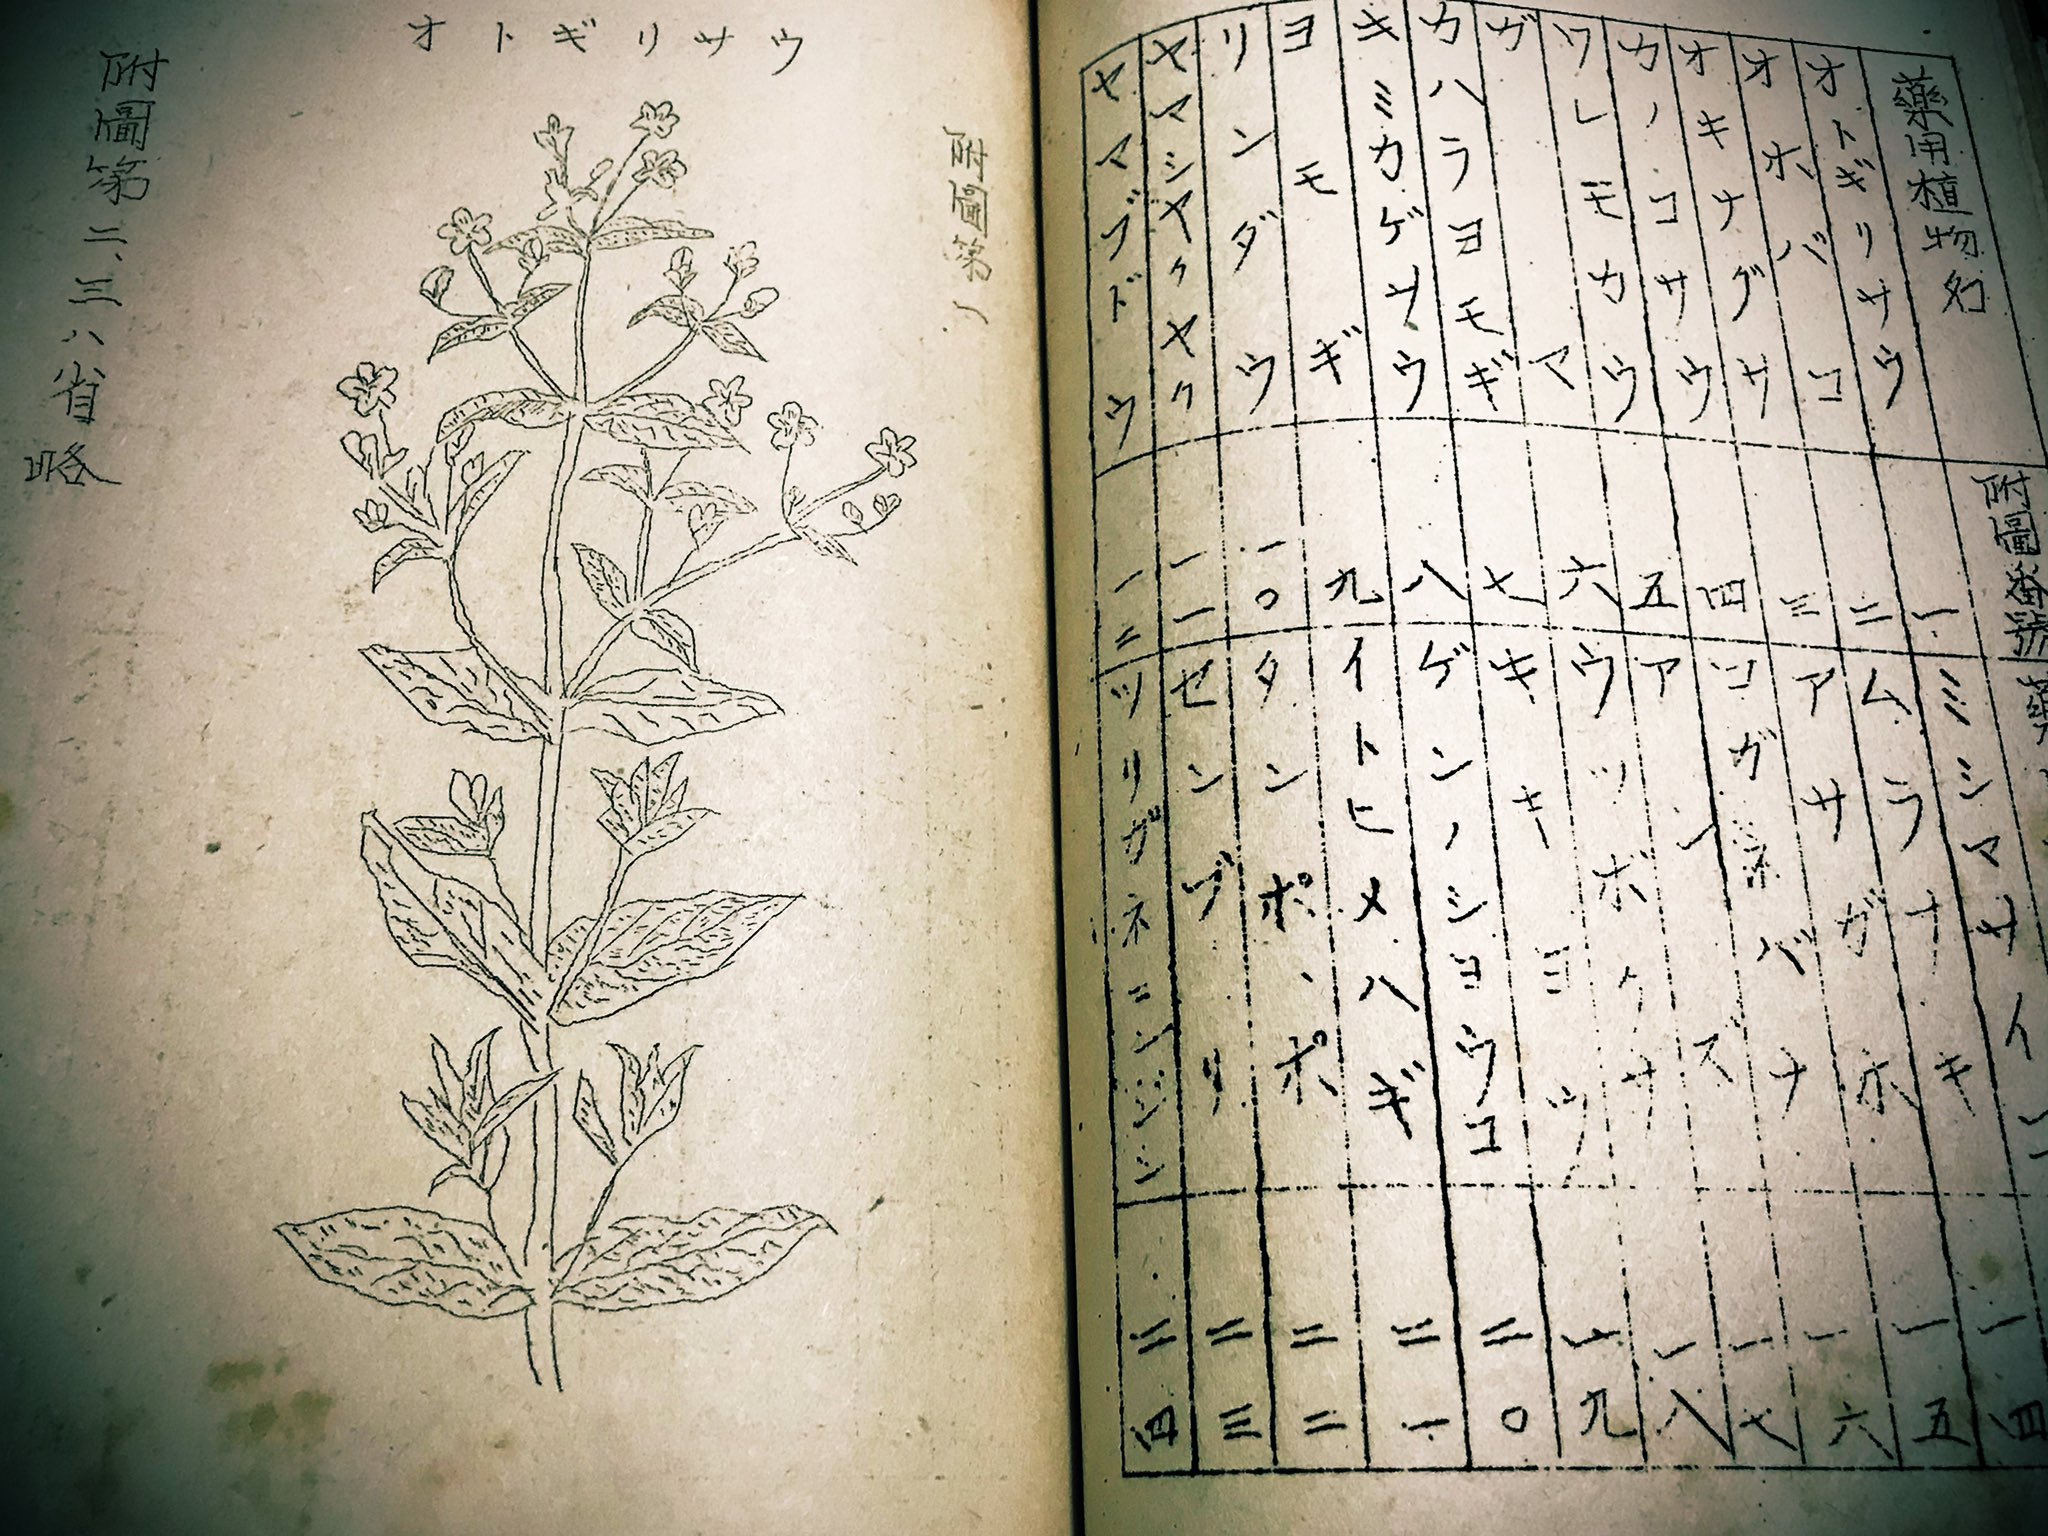 藥用植物名 附圖番號 藥
オトギリサウ 一 ミシマサイコ
オホバコ 二 ムラサキ 一四
オキナグサ 三 アサガホ 一五
カノコサウ 四 コガネバナ 一六
ワレモカウ 五 アンズ 一七
ガマ 六 ウツボグサ 一八
カハラヨモギ 七 キキヨウ 一九
キミカゲサウ 八 ゲンノシヨウコ 二〇
ヨモギ 九 イトヒメハギ 二一
リンダウ 一〇 タンポポ 二二
ヤマシヤクヤク 一一 センブリ 二三
ヤマブドウ 一二 ツリガネニンジン 二四
附圖第一
オトギリサウ
附圖第二、三、八省略